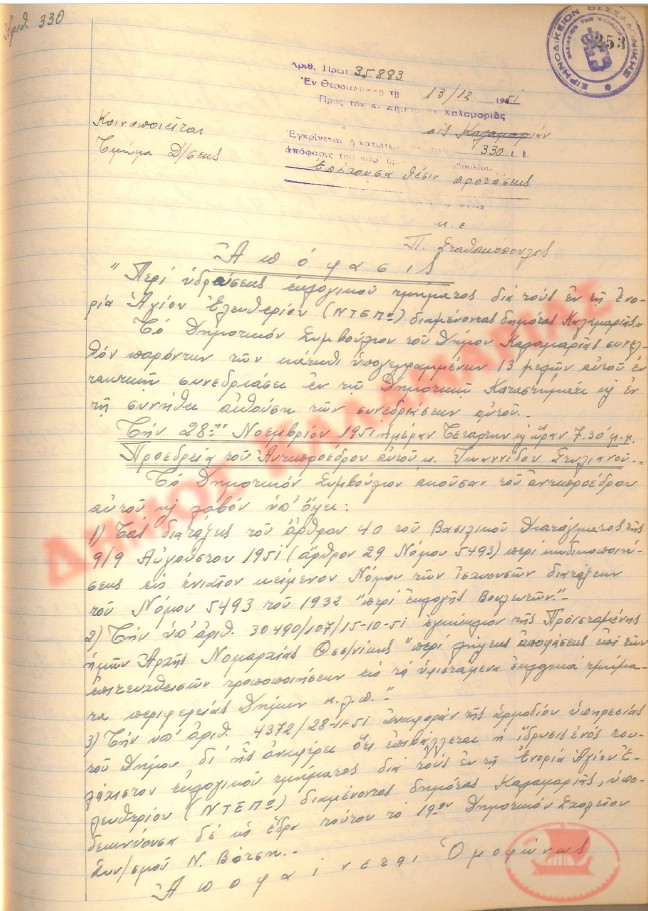 Ἀριθ. 330
ΕΙΡΗΝΟΔΙΚΕΙΟΝ ΘΕΣΣΑΛΟΝΙΚΗΣ
253
Ἀριθ. Πρωτ. 35893
Ἐν Θεσσαλονίκῃ τῇ 13/12 1951
Πρὸς τὸν κ. Καλαμαριᾶς
εἰς Καλαμαριάν
Κοινοποιεῖται
Τμῆμα Δ/σεως
Ἐγκρίνεται ἡ 330 ἐ.ἔ.
ἀπόφασις τοῦ
ἐπέχουσα θέσιν προτάσεως
Π. Σταθακόπουλος
Ἀπόφασις
"Περὶ ἱδρύσεως ἐκλογικοῦ τμήματος διὰ τοὺς ἐν τῇ Ἐνο-
ρίᾳ Ἁγίου Ἐλευθερίου (ΝΤΕΠΩ) διαμένοντας δημότας Καλαμαριᾶς"
Τὸ Δημοτικὸν Συμβούλιον τοῦ Δήμου Καλαμαριᾶς συνελ-
θὸν παρόντων τῶν κάτωθι ὑπογεγραμμένων 13 μελῶν αὐτοῦ ἐν
τακτικῇ συνεδριάσει ἐν τῷ Δημοτικῷ Καταστήματι κ ἐν
τῇ συνήθει αἰθούσῃ τῶν συνεδριάσεων αὐτοῦ.
Τὴν 28ην Νοεμβρίου 1951 ἡμέραν Τετάρτην κ ὥραν 7.30 μ.μ.
Προεδρείᾳ τοῦ Ἀντιπροέδρου αὐτοῦ κ. Ἰωαννίδου Στυλιανοῦ.
Τὸ Δημοτικὸν Συμβούλιον ἀκοῦσαν τοῦ ἀντιπροέδρου
αὐτοῦ κ λαβὸν ὑπ' ὄψει:
1) Τὰς διατάξεις τοῦ ἄρθρου 40 τοῦ Βασιλικοῦ Διατάγματος τῆς
9/9 Αὐγούστου 1951 (ἄρθρον 29 Νόμου 5493) περὶ κωδικοποιή-
σεως εἰς ἑνιαῖον κείμενον Νόμου τῶν ἰσχυουσῶν διατάξεων
τοῦ Νόμου 5493 τοῦ 1932 "περὶ ἐκλογῆς Βουλευτῶν".
2) Τὴν ὑπ' ἀριθ. 30490/107/15-10-51 ἐγκύκλιον τῆς Προϊσταμένης
ἡμῶν Ἀρχῆς Νομαρχίας Θεσ/νίκης "περὶ λήψεως ἀποφάσεως ἐπὶ τῶν
ἐπιτευχθεισῶν τροποποιήσεων εἰς τὰ ὑφιστάμενα ἐκλογικὰ τμήμα-
τα περιφερείας Δήμων κ.λ.π."
3) Τὴν ὑπ' ἀριθ. 4372/28-11-51 ἀναφορὰν τῆς ἁρμοδίου ὑπηρεσίας
τοῦ Δήμου δι' ἧς ἀναφέρει ὅτι ἐπιβάλλεται ἡ ἵδρυσις ἑνὸς του-
λάχιστον ἐκλογικοῦ τμήματος διὰ τοὺς ἐν τῇ Ἐνορίᾳ Ἁγίου Ἐ-
λευθερίου (ΝΤΕΠΩ) διαμένοντας δημότας Καλαμαριᾶς, ὑπο-
δεικνύουσα δὲ ὡς ἕδραν τούτου τὸ 19ον Δημοτικὸν Σχολεῖον
Συν/σμοῦ Ν. Βότση.
Ἀποφαίνεται Ὁμοφώνως